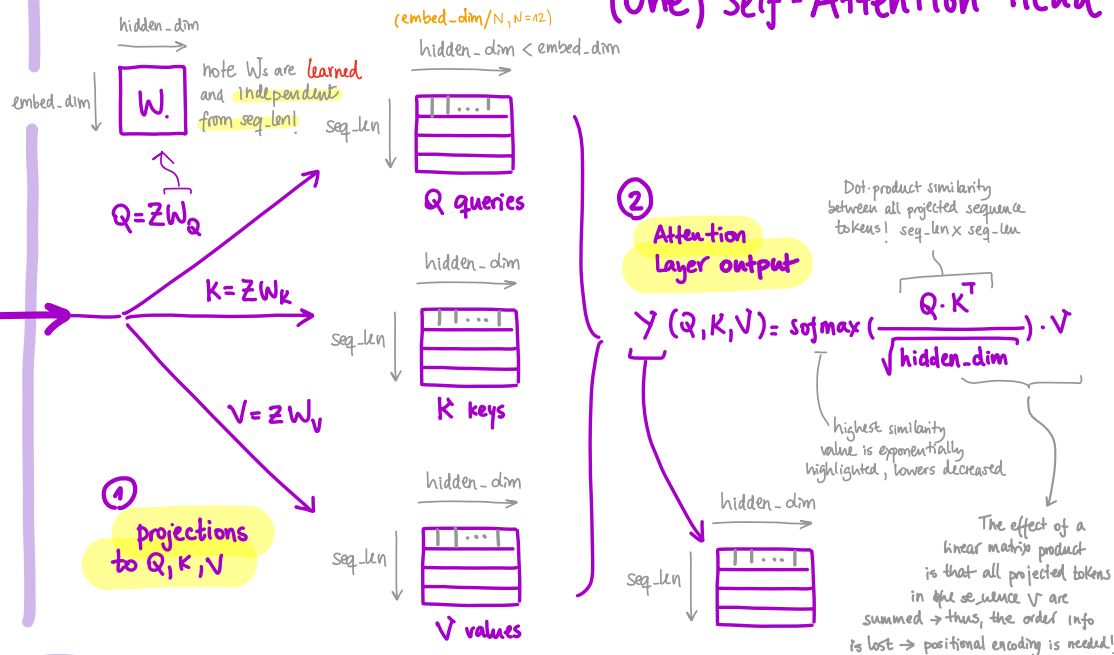 (One) Self-Attention Head
(embed_dim/N, N=12)
hidden_dim
embed_dim
W.
note Ws are learned
and independent
from seq_len!
Q=ZW_Q
K=ZW_K
V=ZW_V
1
projections
to Q, K, V
hidden_dim < embed_dim
seq_len
...
Q queries
hidden_dim
seq_len
...
K keys
hidden_dim
seq_len
...
V values
2
Attention
Layer output
Dot-product similarity
between all projected sequence
tokens! seq_len x seq_len
Y (Q,K,V) = sofmax ( Q·K^T / √hidden_dim ) · V
highest similarity
value is exponentially
highlighted, lowers decreased
hidden_dim
seq_len
...
The effect of a
linear matrix product
is that all projected tokens
in the se_uence V are
summed → thus, the order info
is lost → positional encoding is needed!